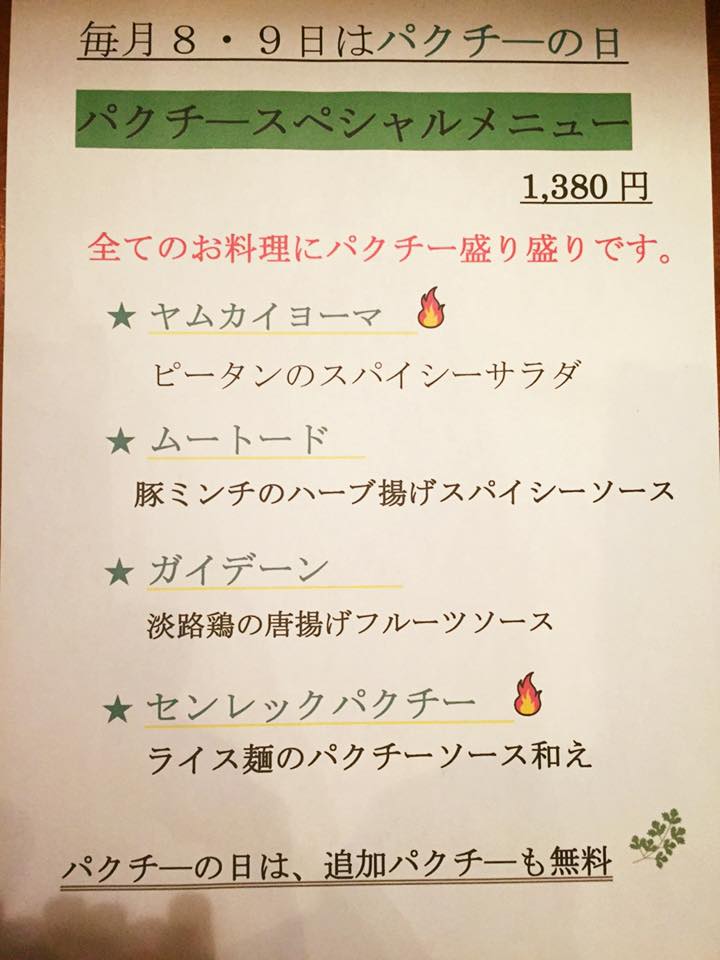 毎月８・９日はパクチ―の日
パクチ―スペシャルメニュー
1,380 円
全てのお料理にパクチー盛り盛りです。
★ ヤムカイヨーマ
ピータンのスパイシーサラダ
★ ムートード
豚ミンチのハーブ揚げスパイシーソース
★ ガイデーン
淡路鶏の唐揚げフルーツソース
★ センレックパクチー
ライス麺のパクチーソース和え
パクチ―の日は、追加パクチ―も無料